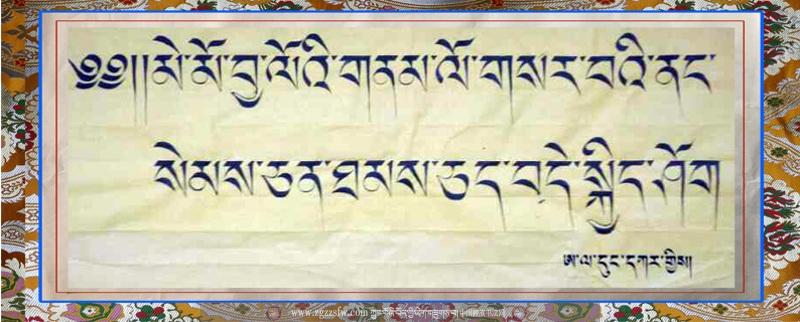 ༄༅།།མེ་མོ་བྱ་ལོའི་གནམ་ལོ་གསར་བའི་ནང་
སེམས་ཅན་ཐམས་ཅད་བདེ་སྐྱིད་ཤོག
ཨ་ལ་དུང་དཀར་གྱིས།
www.zgzzsfw.com